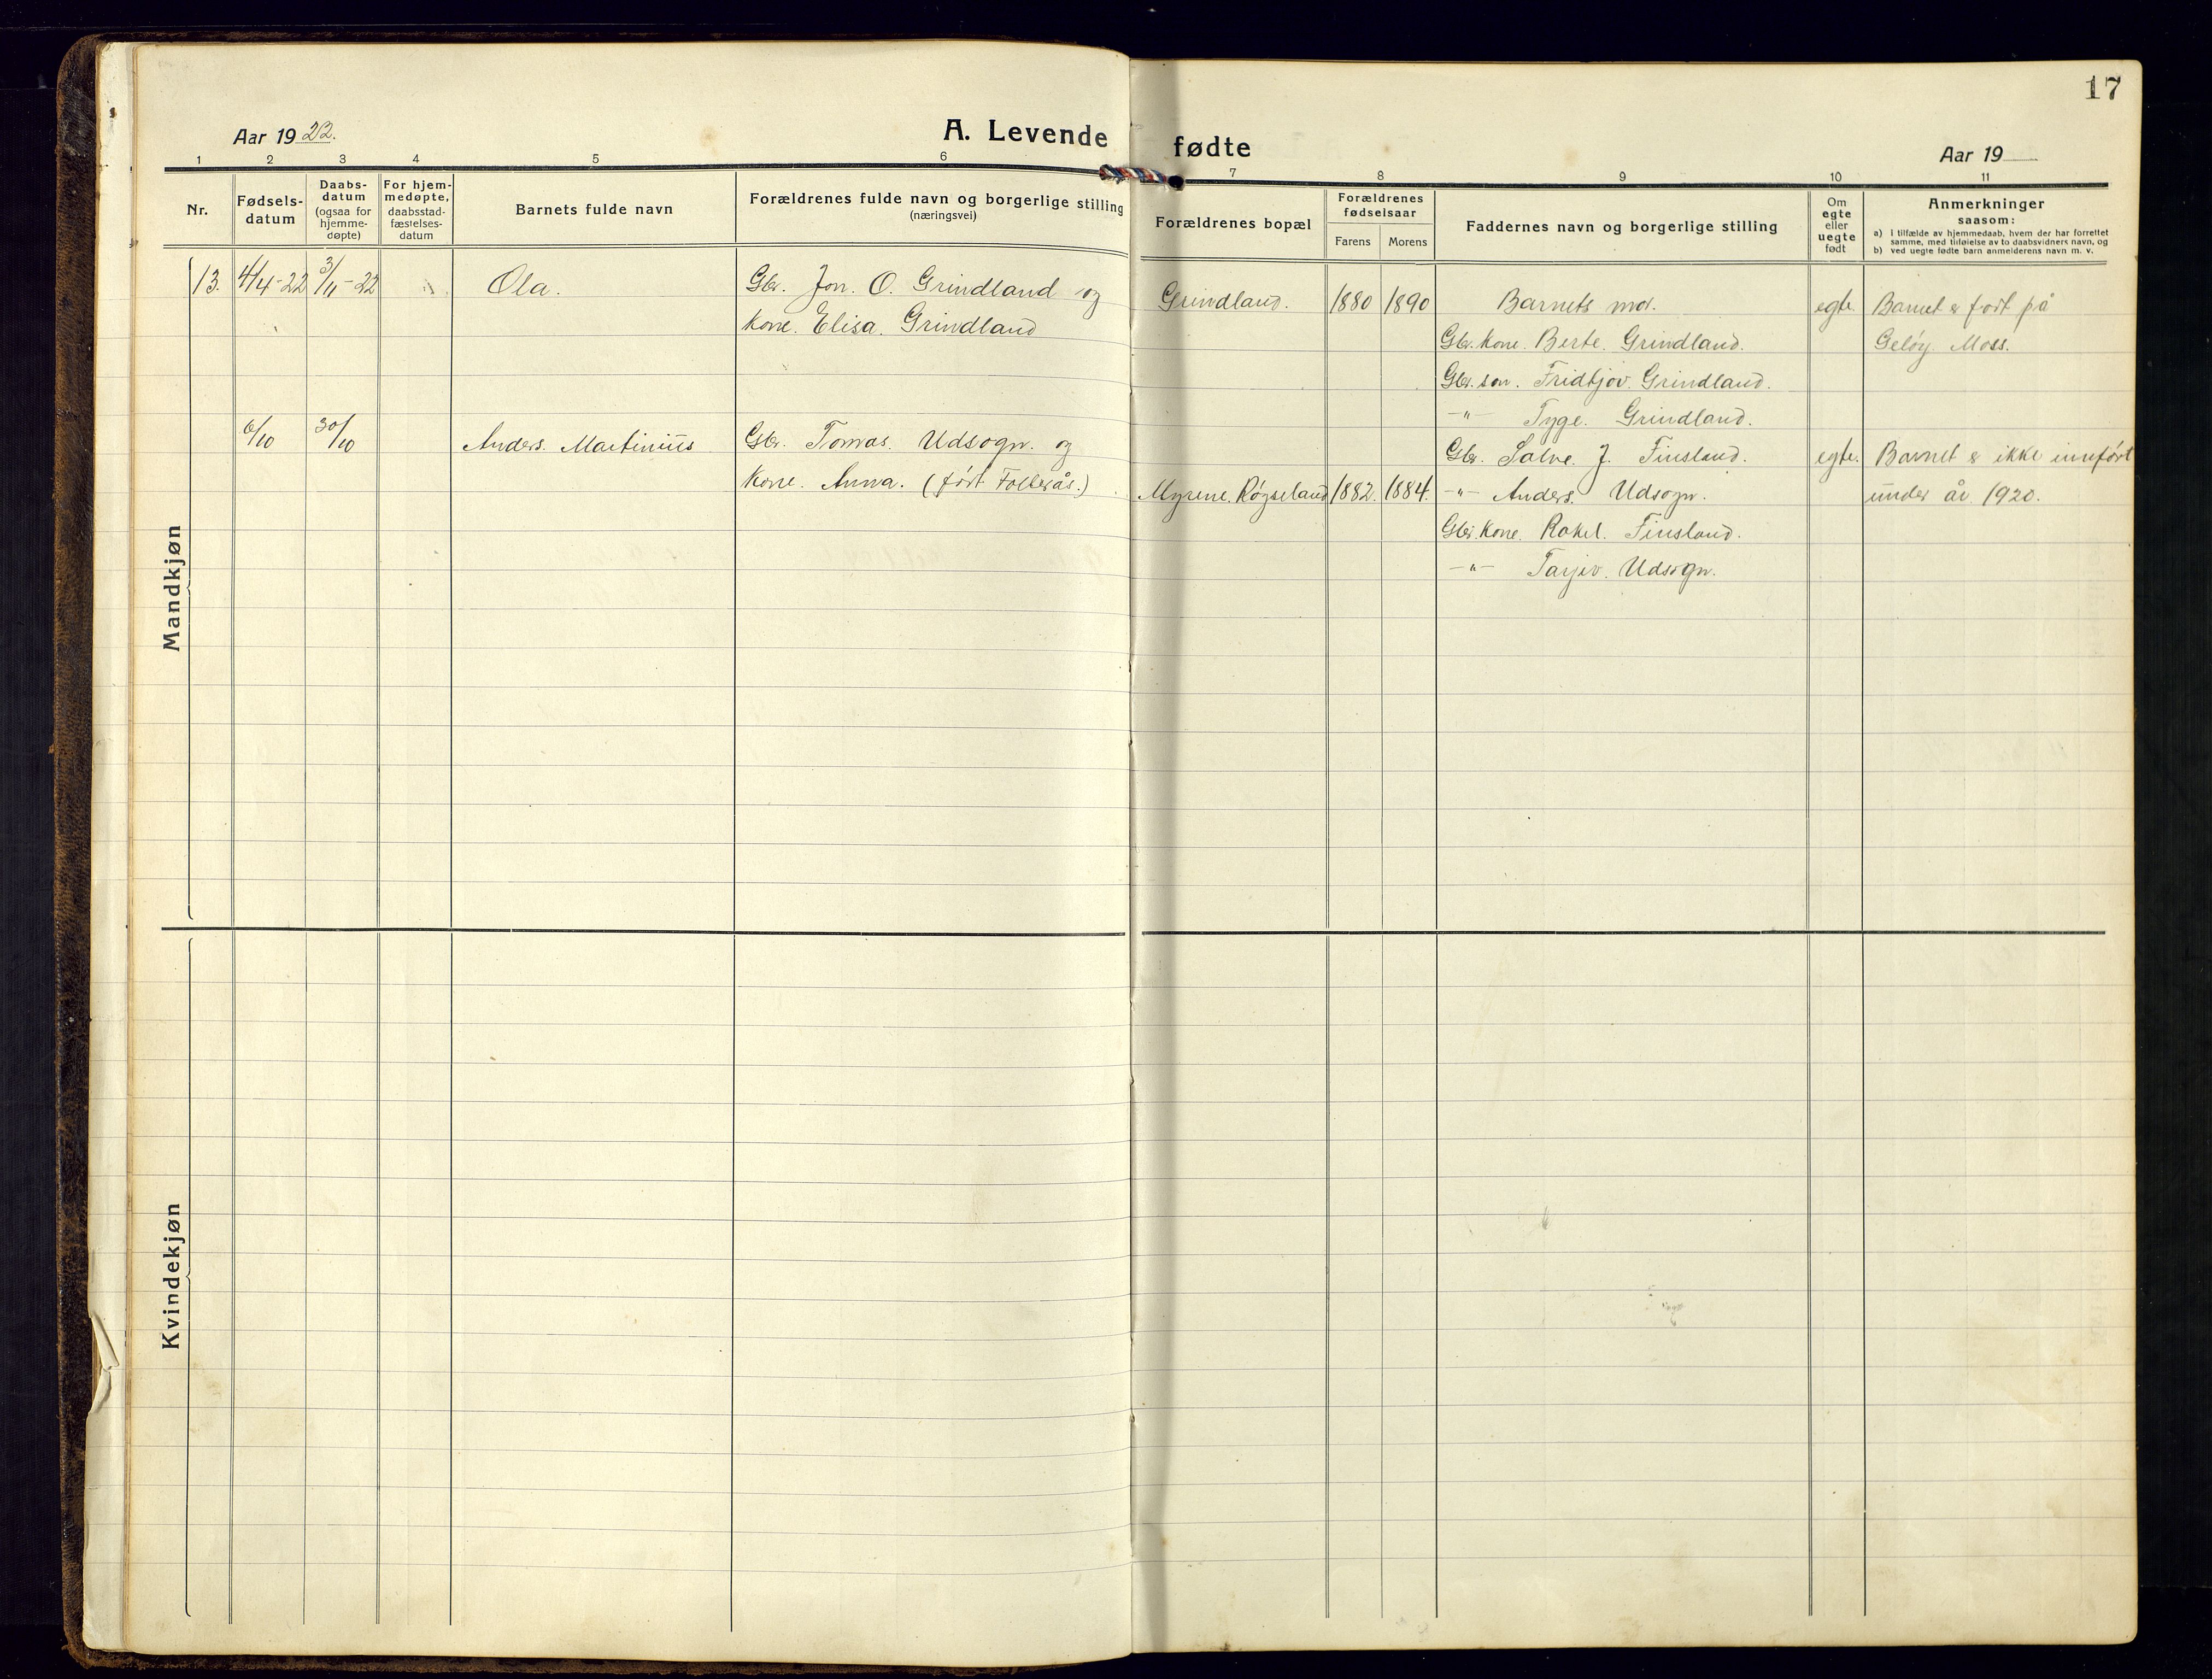 17
Aar 1922.
A. Levende fødte
Aar 19
1 2 3 4 5 6 7 8 9 10 11
Nr.
Fødsels-
datum
Daabs-
datum
(ogsaa for
hjemme-
døpte)
For hjem-
medøpte,
daabsstad-
fæstelses-
datum
Barnets fulde navn
Forældrenes fulde navn og borgerlige stilling
(næringsvei)
Forældrenes bopæl
Forældrenes
fødselsaar
Farens Morens
Faddernes navn og borgerlige stilling
Om
egte
eller
uegte
født
Anmerkninger
saasom:
a) I tilfælde av hjemmedaab, hvem der har forrettet
samme, med tilføielse av to daabsvidners navn, og
b) ved uegte fødte barn anmelderens navn m. v.
Mandkjøn
13. 4/4-22 3/11-22 Ola. Gbr. Jon. O. Grindland og
Kone. Elisa. Grindland
Grindland. 1880 1890 Barnets mor. egte. Barnet er født på
Gbr. Kone. Berte. Grindland. Geløy. Moss.
Gbr. søn. Fridtjov. Grindland.
-"- Tyge. Grindland.
6/10 30/10 Anders. Martinius Gbr. Tomas. Udsogn. og
Kone. Anna. (født Follerås.)
Gbr. Salve. J. Finsland. egte. Barnet er ikke innført
Myrene. Røyseland 1882. 1884. -"- Anders. Udsogn. under år 1920.
Gbr. Kone. Rakel. Finsland.
-"- Tarjer. Udsogn.
Kvindekjøn